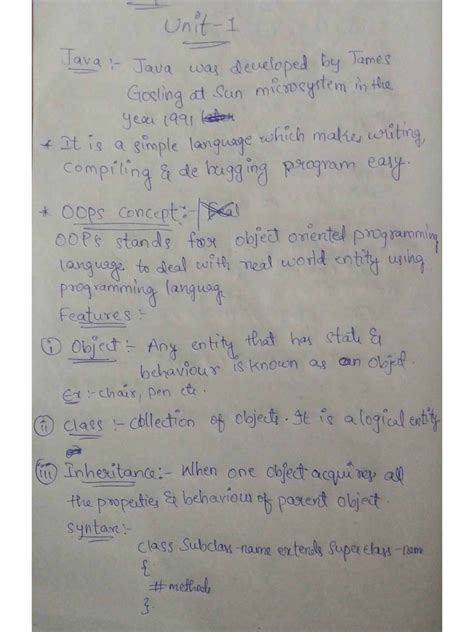 Unit-1
Java :- Java was developed by James
Gosling at Sun microsystem in the
year 1991
* It is a simple language which makes writing,
compiling & de bugging program easy.
* OOPS concept:-
OOPs stands for object oriented programming
language to deal with real world entity using
programming language
Features :-
(i) Object :- Any entity that has state &
behaviour is known as an object.
Ex:- chair, pen etc.
(ii) Class :- collection of objects. It is a logical entity
(iii) Inheritance:- When one object acquires all
the properties & behaviour of parent object.
syntax:-
class Subclass-name extends Superclass-name
{
# methods
}.